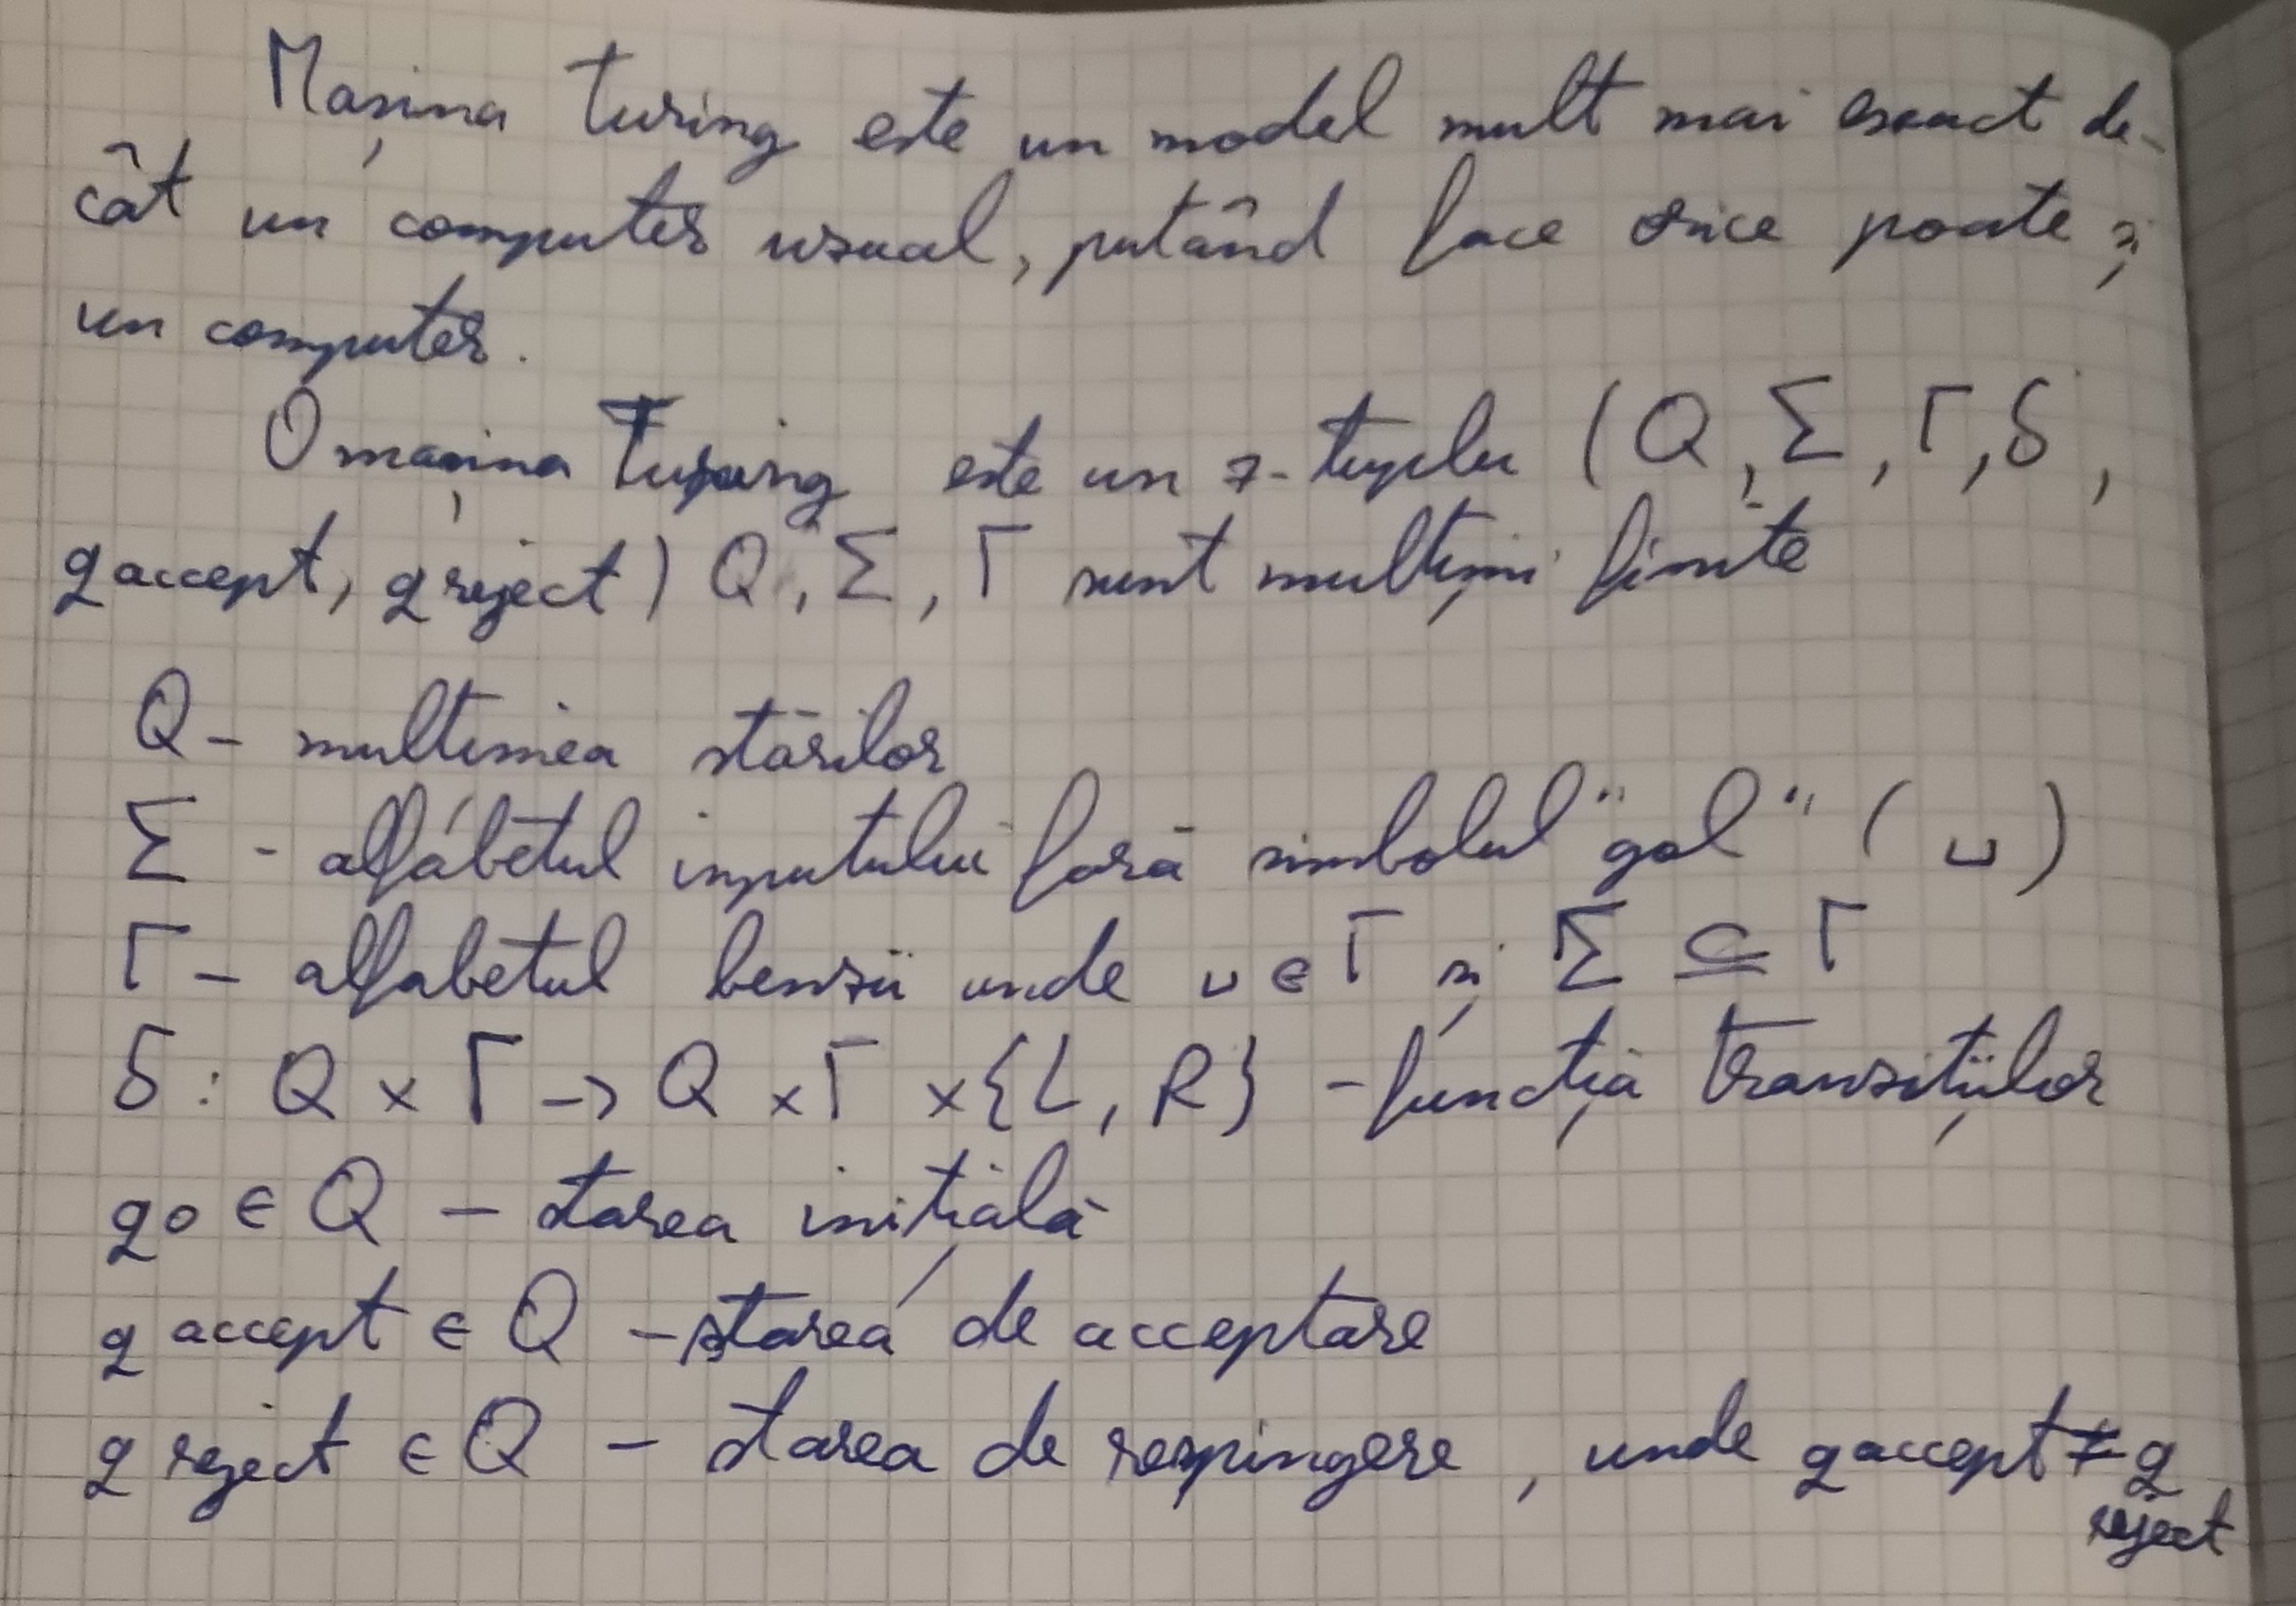 Mașina Turing este un model mult mai exact de-
cât un computer usual, putând face orice poate și
un computer.
O mașina Turing este un 7-tuplu (Q, Σ, Γ, δ,
q accept, q reject) Q, Σ, Γ sunt mulțimi finite
Q - multimea stărilor
Σ - alfabetul inputului fară simbolul "gol" (⊔)
Γ - alfabetul benzii unde ⊔ ∈ Γ și Σ ⊆ Γ
δ: Q × Γ -> Q × Γ × {L, R} - funcția tranzițiilor
q0 ∈ Q - starea inițială
q accept ∈ Q - starea de acceptare
q reject ∈ Q - starea de respingere, unde q accept ≠ q
reject